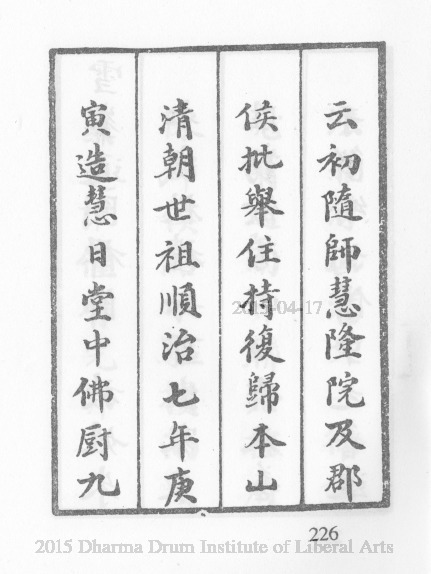 云初隨師慧隆院及郡
侯批舉住持復歸本山
清朝世祖順治七年庚
寅造慧日堂中佛厨九
226
2015 Dharma Drum Institute of Liberal Arts